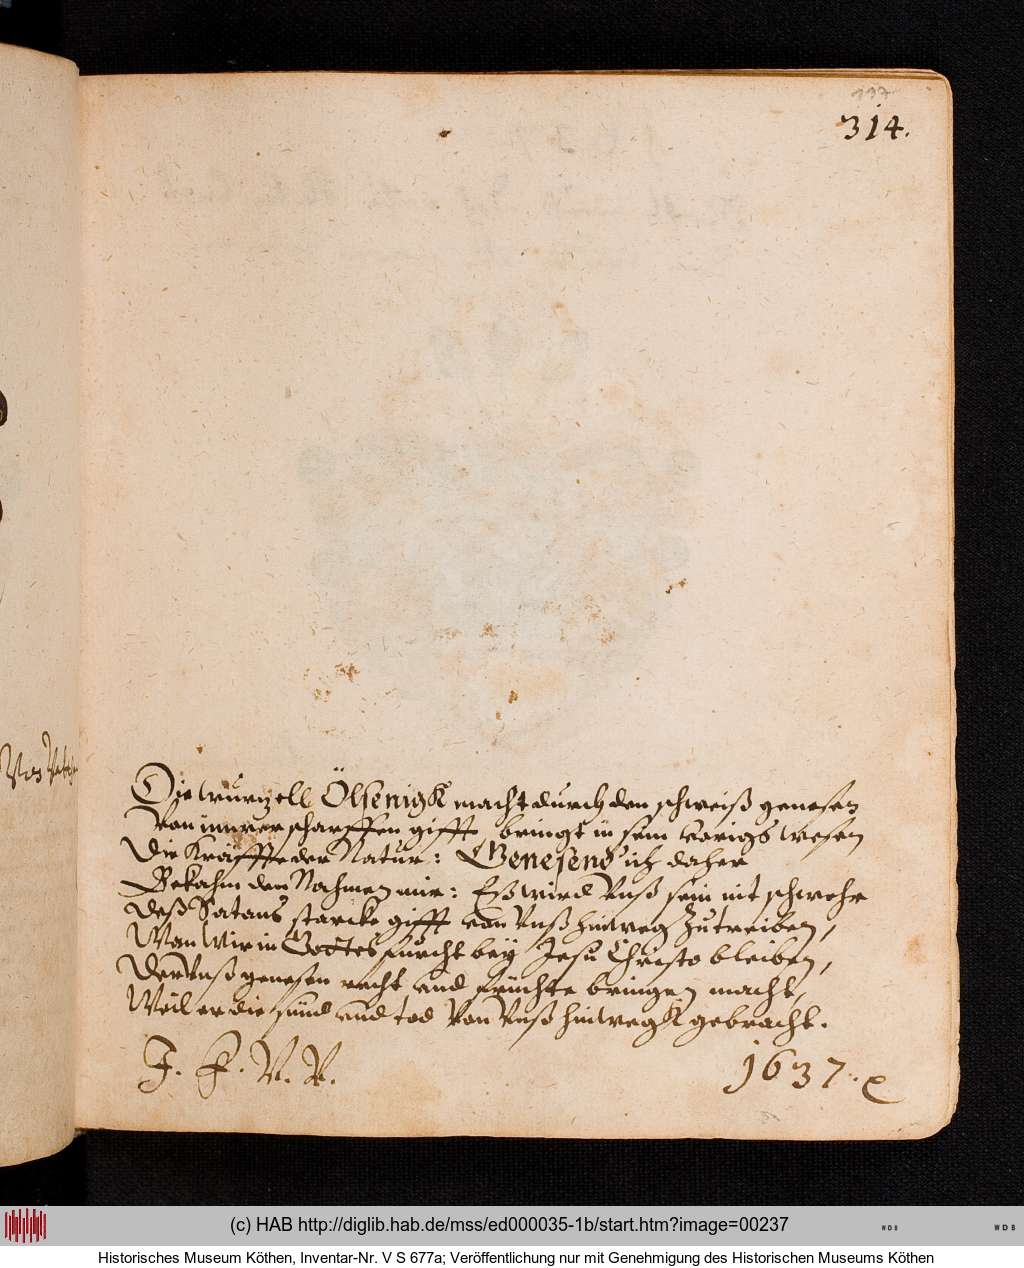 337
314.
Von
Die wurtzell Ölsenigk macht durch den schweiß genesen
Von innrer scharffen gifft, bringt in sein vorigs wesen
Die Kräffte der Natur: Genesend ich daher
Bekahm den Nahmen mir: Eß wird Vnß sein nit schwehr
Deß Satans starcke gifft von Vnß hinweg Zutreiben,
Wan Wir in Gottes furcht bey Jesu Christo bleiben,
Der Vnß genesen recht vnd früchte bringen macht,
Weil er die sünd vnd tod Von Vnß hinwegk gebracht.
J. F. V. R.
1637.
(c) HAB http://diglib.hab.de/mss/ed000035-1b/start.htm?image=00237
WDB
WDB
Historisches Museum Köthen, Inventar-Nr. V S 677a; Veröffentlichung nur mit Genehmigung des Historischen Museums Köthen